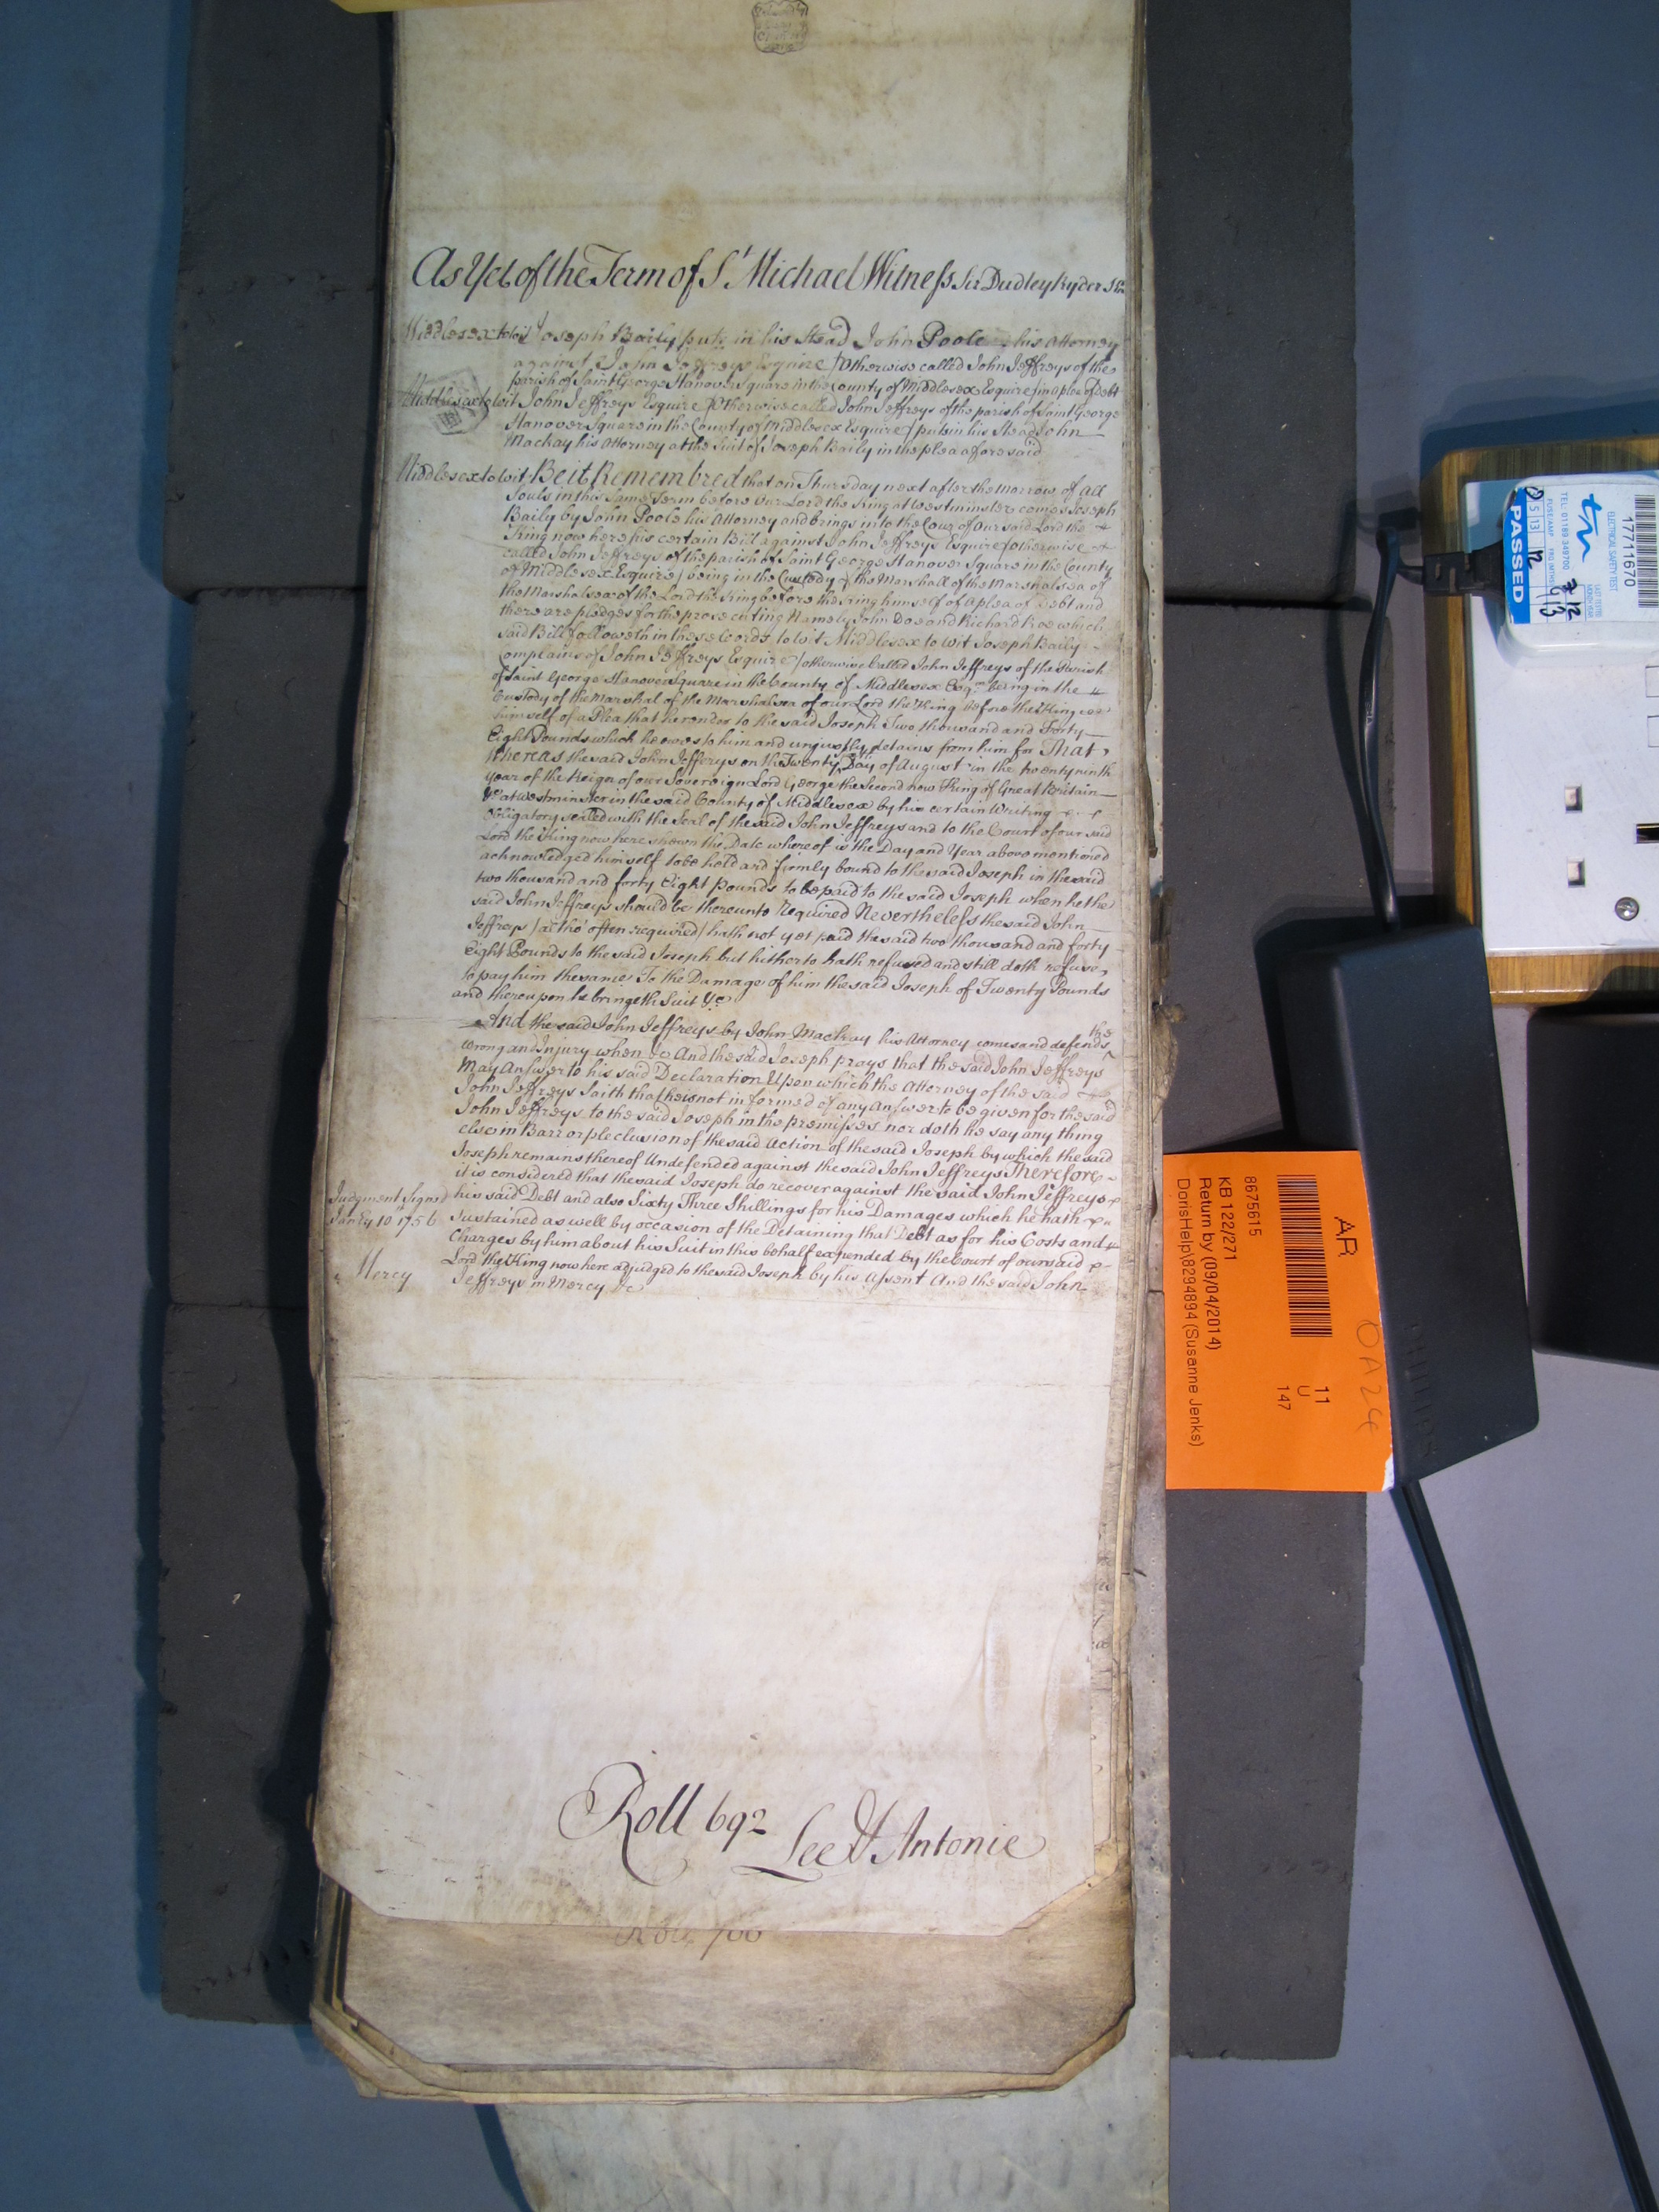 As Yet of the Term of St Michael Witness Sir Dudley Ryder Kt
Middlesex to wit Joseph Baily puts in his Stead John Poole his Attorney
against John Jeffreys Esquire /Otherwise called John Jeffreys of the
parish of Saint George Hanover Square in the County of Middlesex Esquire/ in a plea of Debt
Middlesex to wit John Jeffreys Esquire /Otherwise called John Jeffreys of the parish of Saint George
Hanover Square in the County of Middlesex Esquire/ puts in his Stead John
Mackay his Attorney at the Suit of Joseph Baily in the plea aforesaid
Middlesex to wit Be it Remembred that on Thursday next after the Morrow of All
Souls in this same Term before Our Lord the King at Westminster comes Joseph
Baily by John Poole his Attorney and brings into the Cour of Our said Lord the
King now here his certain Bill against John Jeffreys Esquire /otherwise
called John Jeffreys of the parish of Saint George Hanover Square in the County
of Middlesex Esquire/ being in the Custody of the Marshall of the Marshalsea of
the Marshalsea of the Lord the King before the King himself of a plea of Debt and
there are pledges for the prosecuting Namely John Doe and Richard Roe which
said Bill followeth in these Words to wit Middlesex to wit Joseph Baily
Complains of John Jeffreys Esquire /otherwise Called John Jeffreys of the Parish
of Saint George Hanover Square in the County of Middlesex Esqr. being in the
Custody of the Marshal of the Marshalsea of our Lord the King before the King
himself of a Plea that he render to the said Joseph Two thousand and Forty
Eight Pounds which he owes to him and unjustly detains from him for That,
Whereas the said John Jefferys on the Twenty Day of August in the twenty ninth
year of the Reign of our Sovereign Lord George the Second now King of Great Britain
&c at Westminster in the said County of Middlesex by his certain Writing
Obligatory sealed with the Seal of the said John Jeffreys and to the Court of our said
Lord the King now here shewn the Date whereof is the Day and Year above mentioned
acknowledged himself to be held and firmly bound to the said Joseph in the said
two thousand and forty Eight pounds to be paid to the said Joseph when he the
said John Jeffreys should be thereunto Required Nevertheless the said John
Jeffreys /altho' often required/ hath not yet paid the said two thousand and forty
Eight Pounds to the said Joseph but hitherto hath refused and still doth refuse,
to pay him the same To the Damage of him the said Joseph of Twenty Pounds
and thereupon he bringeth Suit &c
And the said John Jeffreys by John Mackay his Attorney comes and defends the
Wrong and Injury when &c And the said Joseph prays that the said John Jeffreys
May Answer to his said Declaration Upon which the Attorney of the said
John Jeffreys Saith that he is not informed of any Answer to be given for the said
John Jeffreys to the said Joseph in the premisses nor doth he say any thing
else in Barr or pleclusion of the said Action of the said Joseph by which the said
Joseph remains thereof Undefended against the said John Jeffreys Therefore
it is considered that the said Joseph do recover against the said John Jeffreys
Judgment Signed his said Debt and also Sixty Three Shillings for his Damages which he hath
Janry 10th 1756 Sustained as well by occasion of the Detaining that Debt as for his Costs and
Charges by him about his Suit in this behalf expended by the Court of our said
Lord the King now here adjudged to the said Joseph by his Assent And the said John
Mercy Jeffreys in Mercy &c
Roll 692
Lee & Antonie
Roll 700
AR
11
U
147
OA24
8675615
KB 122/271
Return by (09/04/2014)
DorisHelp\8294894 (Susanne Jenks)
17711670
ELECTRICAL SAFETY TEST
PASSED